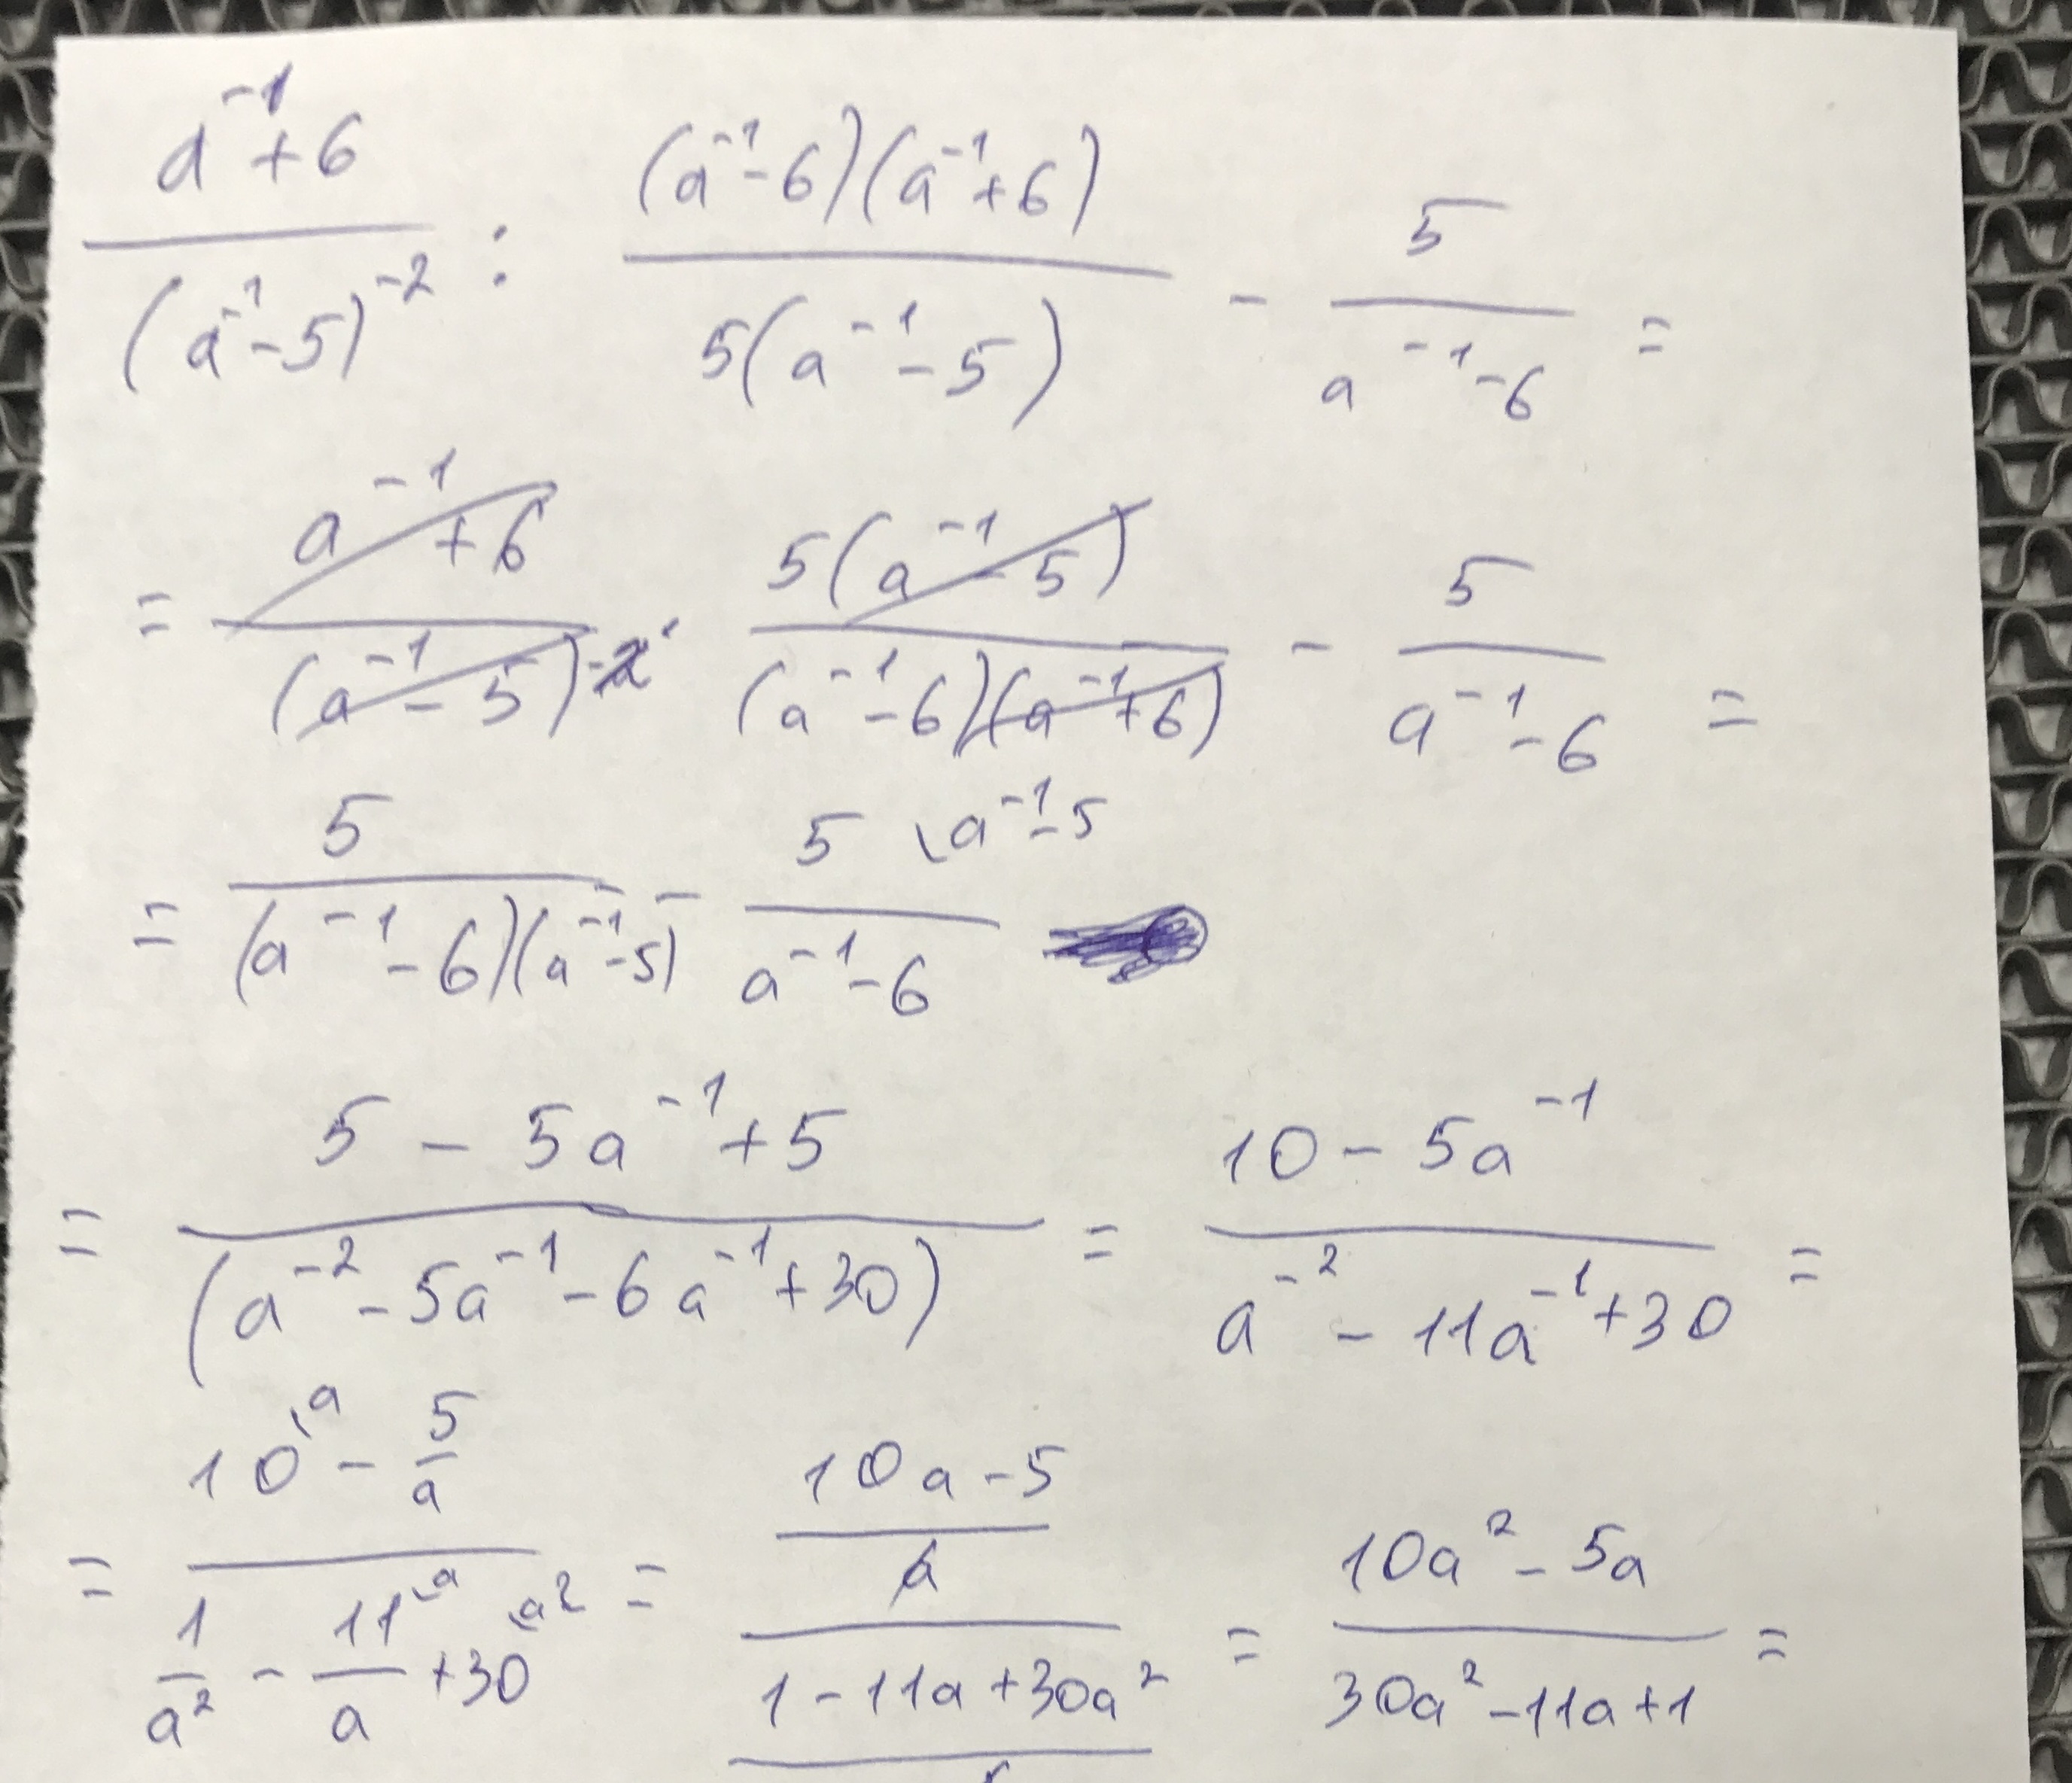 (a⁻¹ + 6)/(a⁻¹ - 5)⁻² : ((a⁻¹ - 6)(a⁻¹ + 6))/(5(a⁻¹ - 5)) - 5/(a⁻¹ - 6) =
= (a⁻¹ + 6)/(a⁻¹ - 5)⁻² · (5(a⁻¹ - 5))/((a⁻¹ - 6)(a⁻¹ + 6)) - 5/(a⁻¹ - 6) =
= 5/((a⁻¹ - 6)(a⁻¹ - 5)) - 5 \a⁻¹ - 5/(a⁻¹ - 6)
= (5 - 5a⁻¹ + 5)/(a⁻² - 5a⁻¹ - 6a⁻¹ + 30) = (10 - 5a⁻¹)/(a⁻² - 11a⁻¹ + 30) =
= (10\a - 5/a)/(1/a² - 11\a/a + 30\a²) = ((10a - 5)/a)/((1 - 11a + 30a²)/) = (10a² - 5a)/(30a² - 11a + 1) =